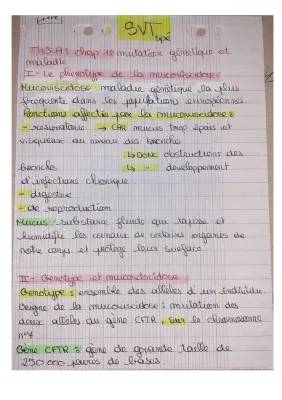 SVT
spé
Th3.A1 chap 1: mutation génétique et
maladie
I - Le phénotype de la mucoviscidose
Mucoviscidose : maladie génétique la plus
fréquente dans les populations européennes.
Fonctions affectée par la mucoviscidose :
- respiratoire → CAR mucus trop épais et
visqueux au niveau des bronche
↳ DONC obstructions des
bronche ↳ " développement
d'infections chronique
- digestive
- de reproduction
Mucus : substance fluide qui tapisse et
humidifie les canaux de certains organes de
notre corps et protège leur surface
II - Genotype et mucoviscidose
Genotype : ensemble des allèles d'un individu
Origine de la mucoviscidose : mutation des
deux allèles du gène CFTR, sur le chromosome
n°7
Gène CFTR : gène de grande taille de
250 000 paires de bases.